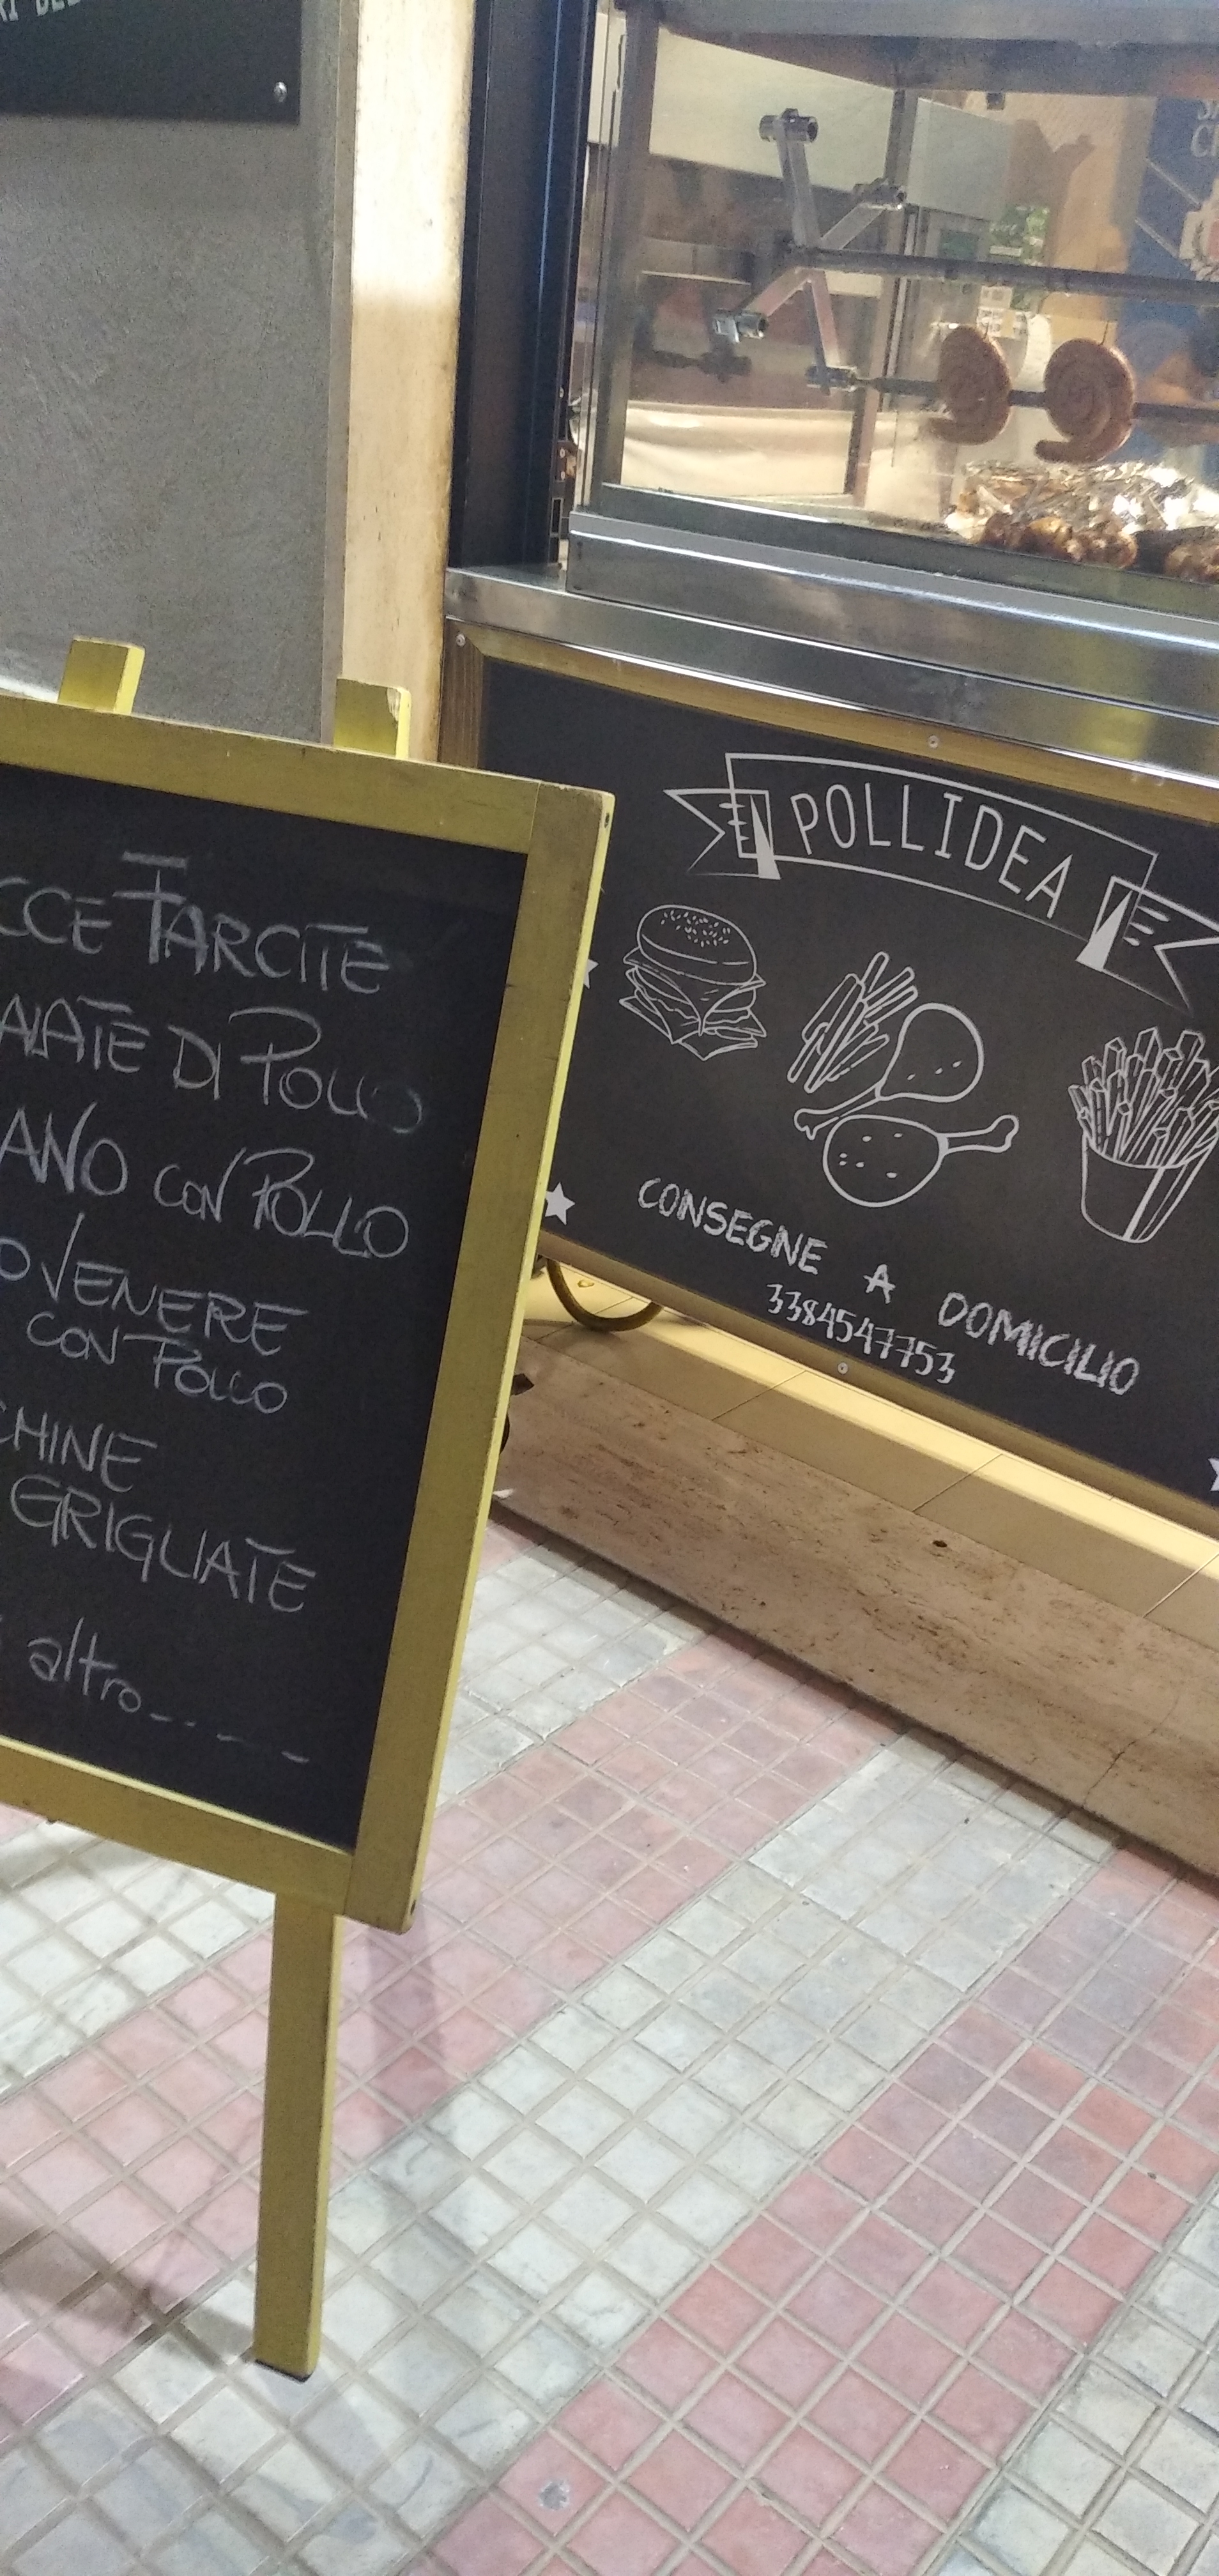 RI DEL
CCE FARCITE
AIATE DI POLLO
ANO CON POLLO
O VENERE
CON POLLO
CHINE
GRIGLIATE
altro-----
POLLIDEA
CONSEGNE A DOMICILIO
3384547753